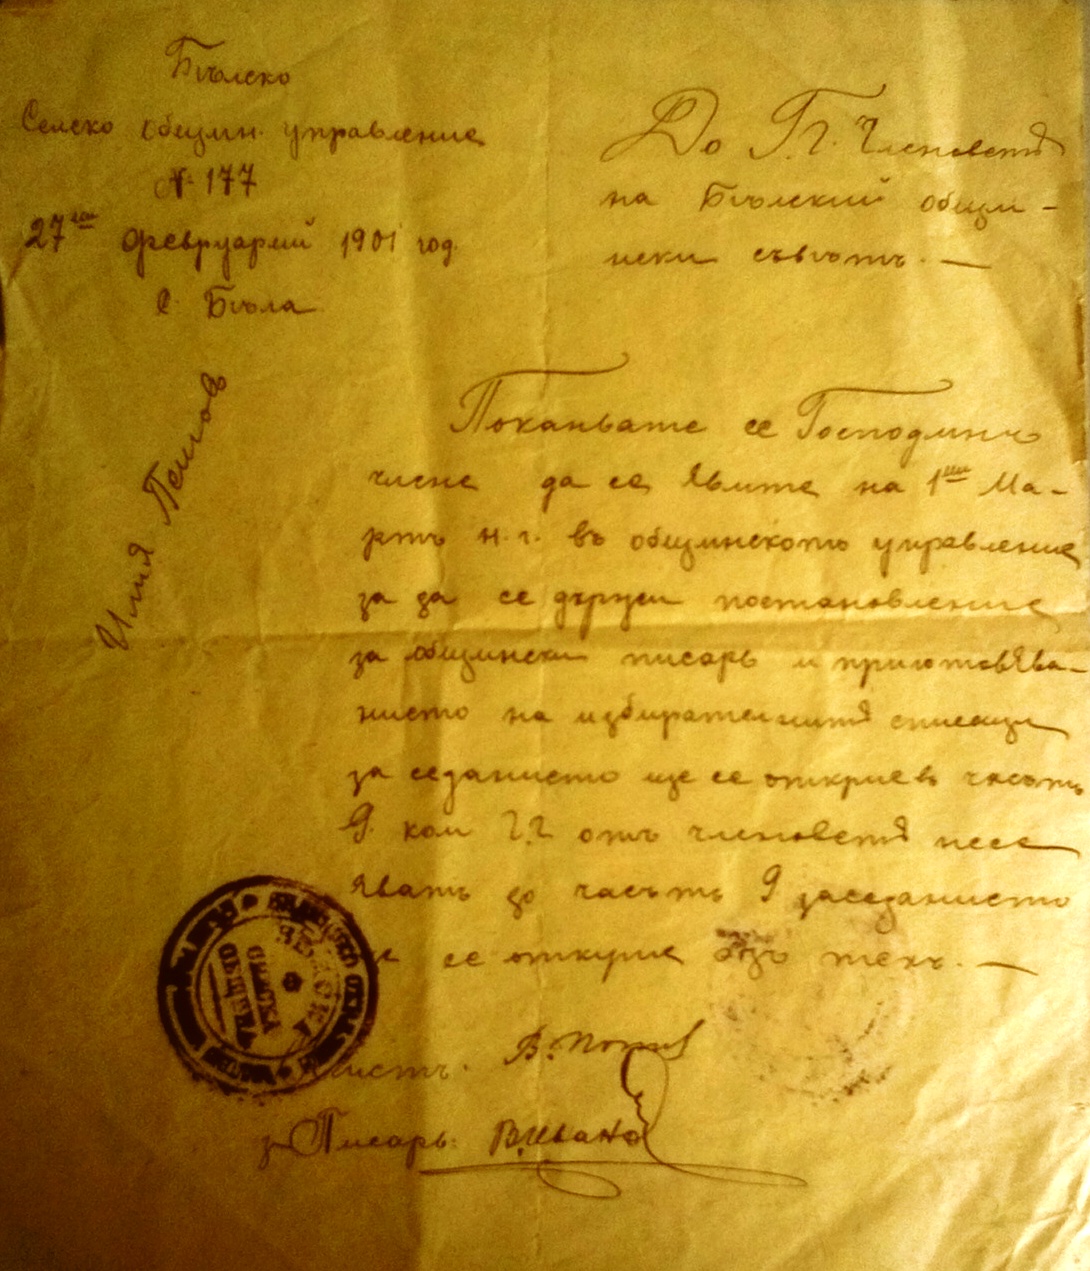 Бѣлско
Селско общин. управление
№ 177
27ий Февруарий 1901 год.
с. Бѣла
До Г.Г. Членоветѣ
на Бѣлский общин-
иски съвѣтъ. —
Илия Пенов
Поканвате се Господинъ
члене да се явите на 1ий Ма-
ртъ н.г. въ общинското управление
за да се държи постановление
за общински писарь и приготовява-
нието на избирателнитѣ списъци
заседанието ще се открие въ часътъ
9. кои Г.Г. отъ членоветѣ несе
явятъ до часътъ 9 заседанието
се открие безъ техъ. —
В. Попов
за Писарь: В. Иванов
СЕЛСКА
ОБЩИНА